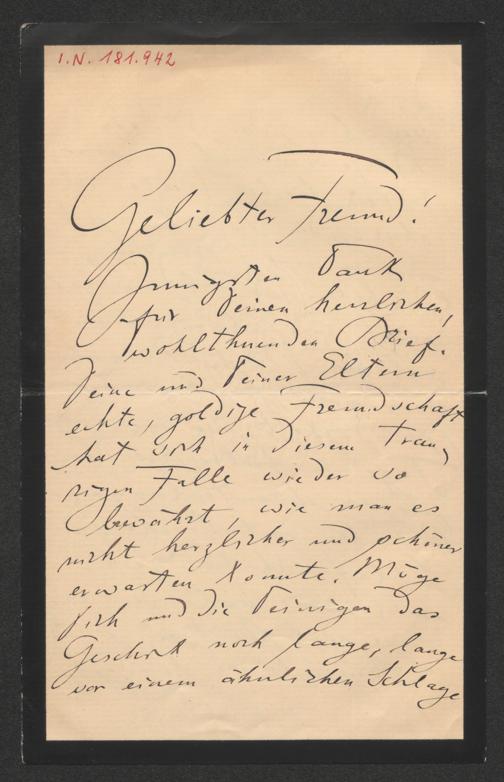 I.N. 181.942
Geliebter Freund!
Innigsten Dank
für Deinen herzlichen,
wohlthuenden Brief.
Deine und Deiner Eltern
echte, goldige Freundschaft
hat sich in diesem trau-
rigen Falle wieder so
bewährt, wie man es
nicht herzlicher und schöner
erwarten konnte. Möge
Dich und die Deinigen das
Geschick noch lange, lange
vor einem ähnlichen Schlage